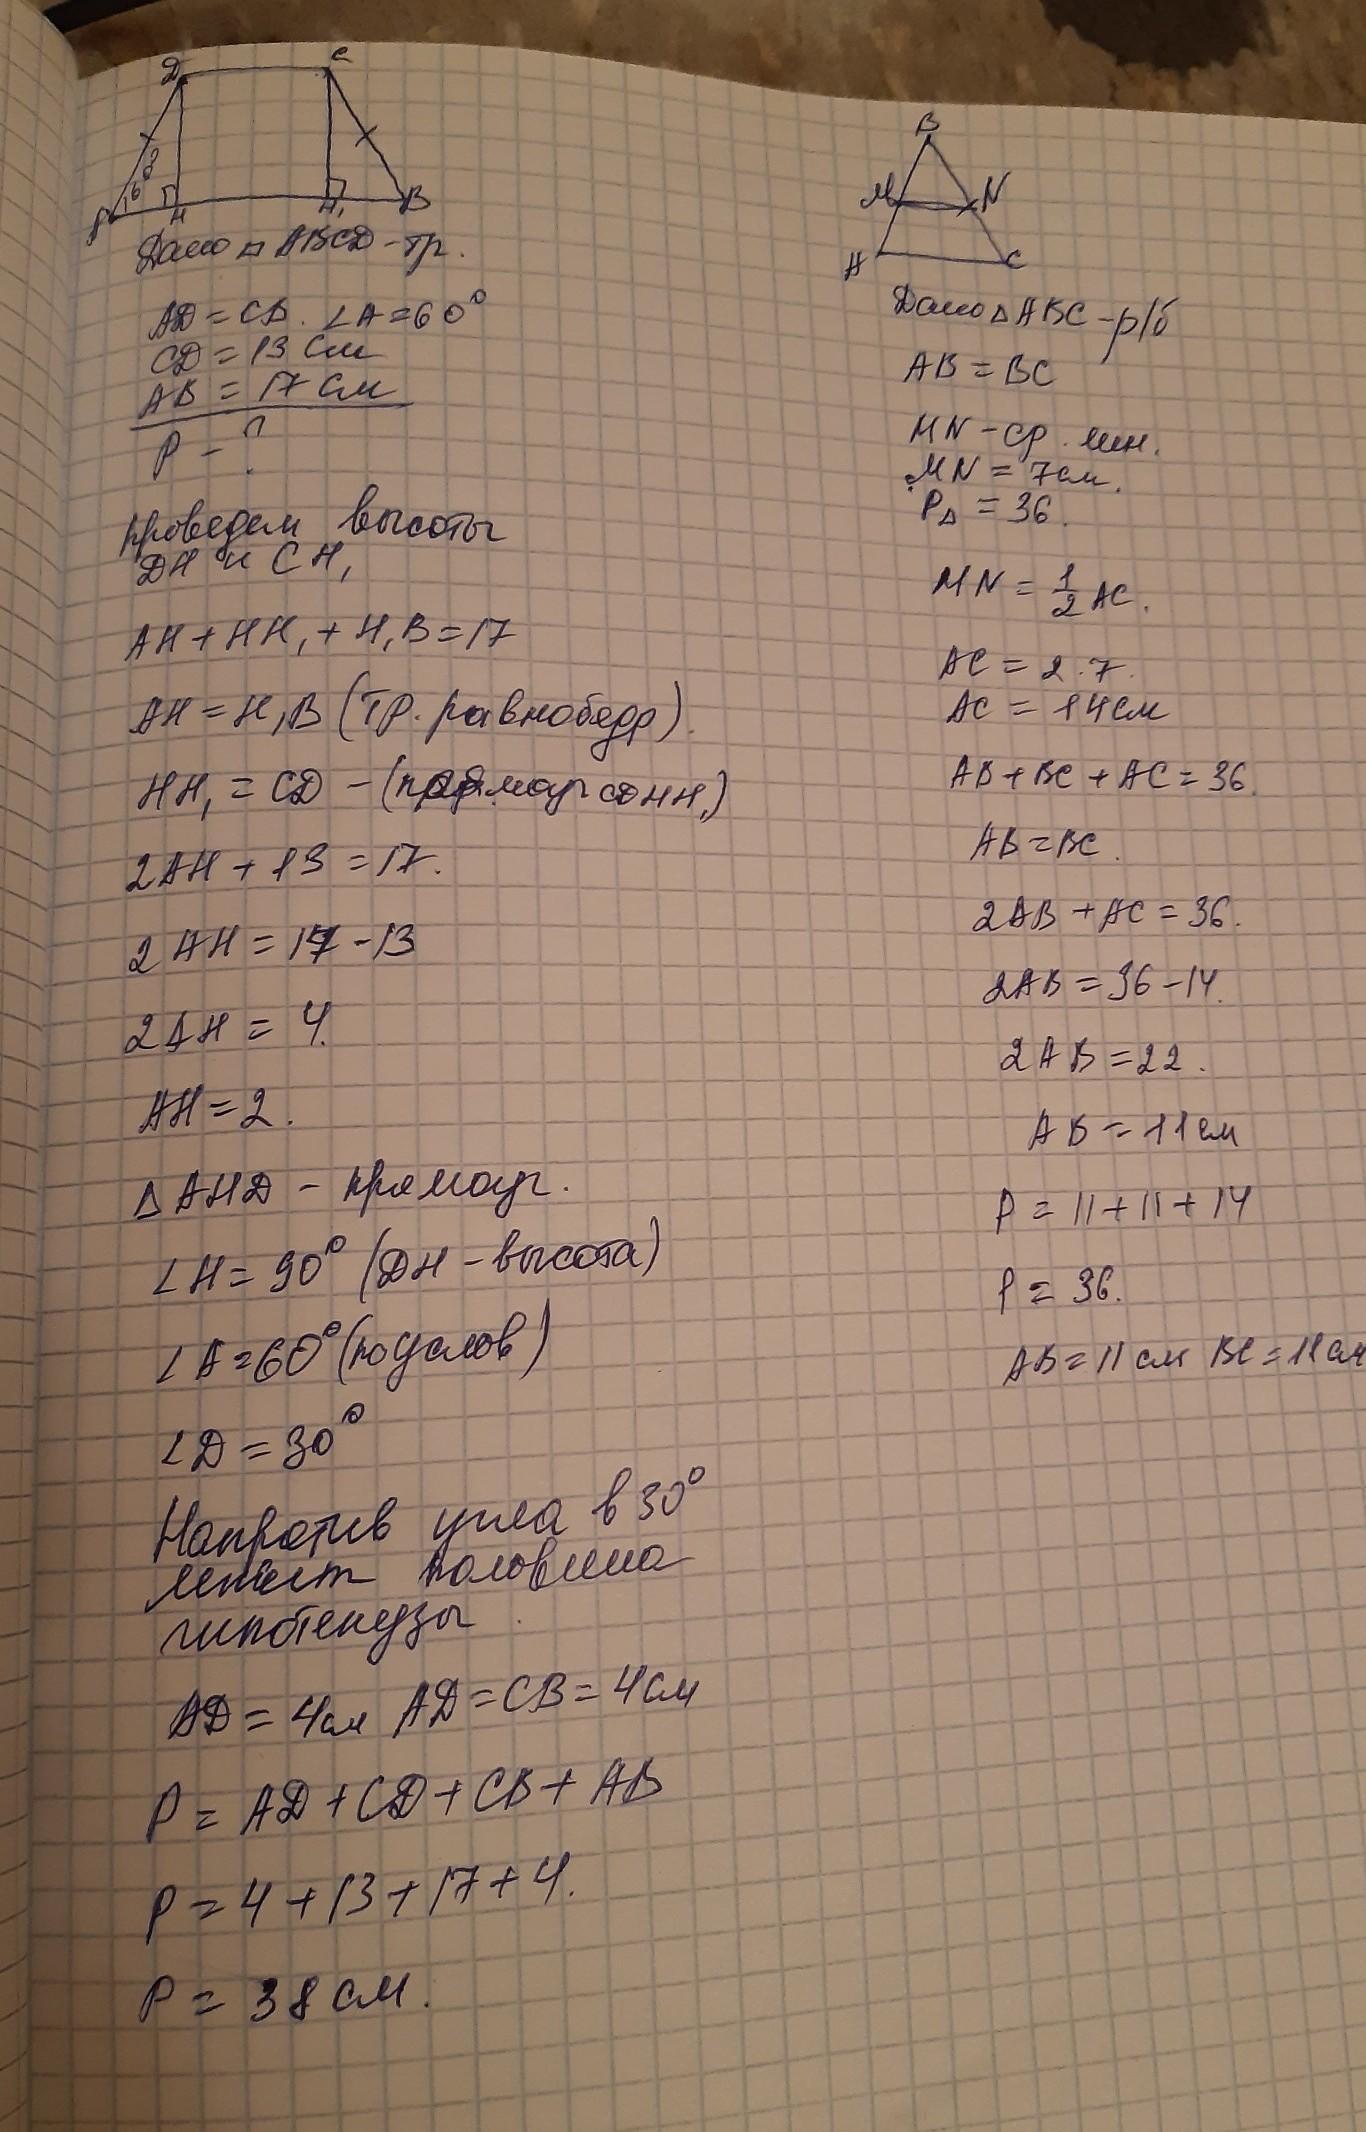 Д C
60°
A H H₁ B
Дано △ ABCD - тр.
AD = CB. ∠A = 60°
CD = 13 см
AB = 17 см
P - ?
проведем высоты
DH и CH₁
AH + HH₁ + H₁B = 17
AH = H₁B (тр. равнобедр).
HH₁ = CD - (
2AH + 13 = 17.
2AH = 17 - 13
2AH = 4.
AH = 2.
△ AHD - прямоуг.
∠H = 90° (DH - высота)
∠A = 60° (по услов)
∠D = 30°
Напротив угла в 30°
лежит половина
гипотенузы
AD = 4см AD = CB = 4см
P = AD + CD + CB + AB
P = 4 + 13 + 17 + 4.
P = 38 см.
B
M N
A C
Дано △ ABC - р/б
AB = BC
MN - ср. лин.
MN = 7см.
P△ = 36.
MN = 1/2 AC.
AC = 2 · 7.
AC = 14см
AB + BC + AC = 36.
AB = BC.
2AB + AC = 36.
2AB = 36 - 14.
2AB = 22.
AB = 11см
P = 11 + 11 + 14
P = 36.
AB = 11 см BC = 11см